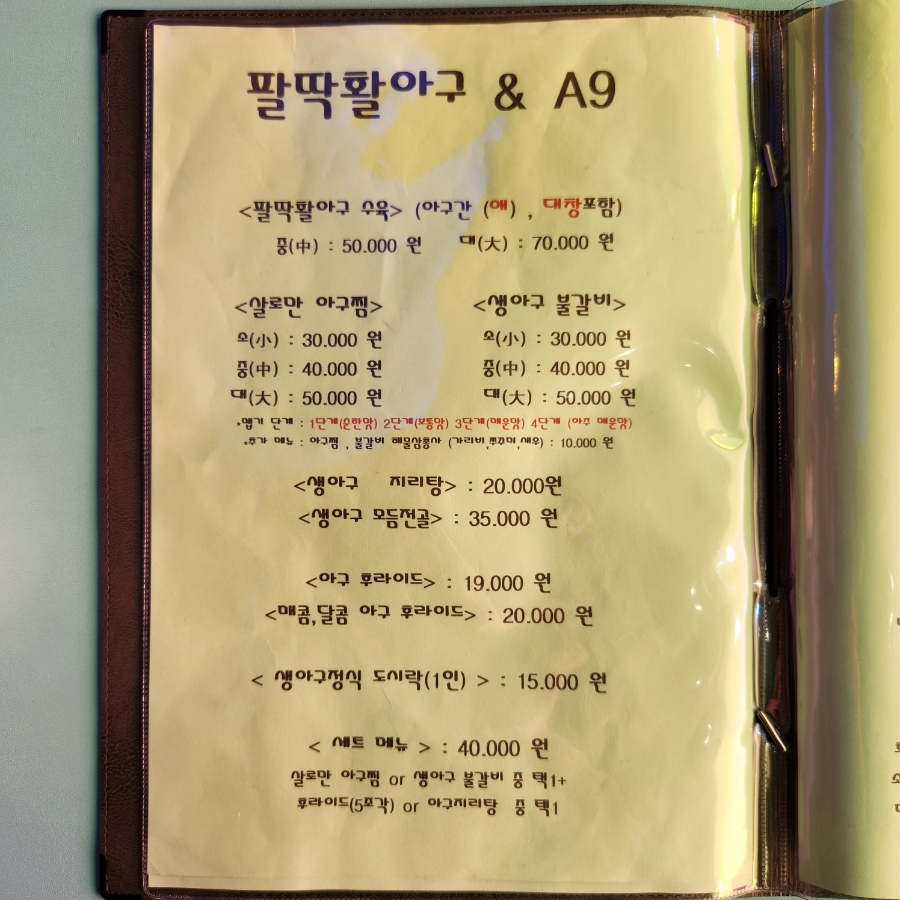 팔딱활아구 & A9
<팔딱활아구 수육> (아구간 (애) , 대창포함)
중(中) : 50.000 원 대(大) : 70.000 원
<살로만 아구찜> <생아구 불갈비>
소(小) : 30.000 원 소(小) : 30.000 원
중(中) : 40.000 원 중(中) : 40.000 원
대(大) : 50.000 원 대(大) : 50.000 원
*맵기 단계 : 1단계(순한맛) 2단계(보통맛) 3단계(매운맛) 4단계 (아주 매운맛)
*추가 메뉴 : 아구찜 , 불갈비 해물삼총사 (가리비,쭈꾸미,새우) : 10.000 원
<생아구 지리탕> : 20.000원
<생아구 모듬전골> : 35.000 원
<아구 후라이드> : 19.000 원
<매콤,달콤 아구 후라이드> : 20.000 원
< 생아구정식 도시락(1인) > : 15.000 원
< 세트 메뉴 > : 40.000 원
살로만 아구찜 or 생아구 불갈비 중 택1+
후라이드(5조각) or 아구지리탕 중 택1